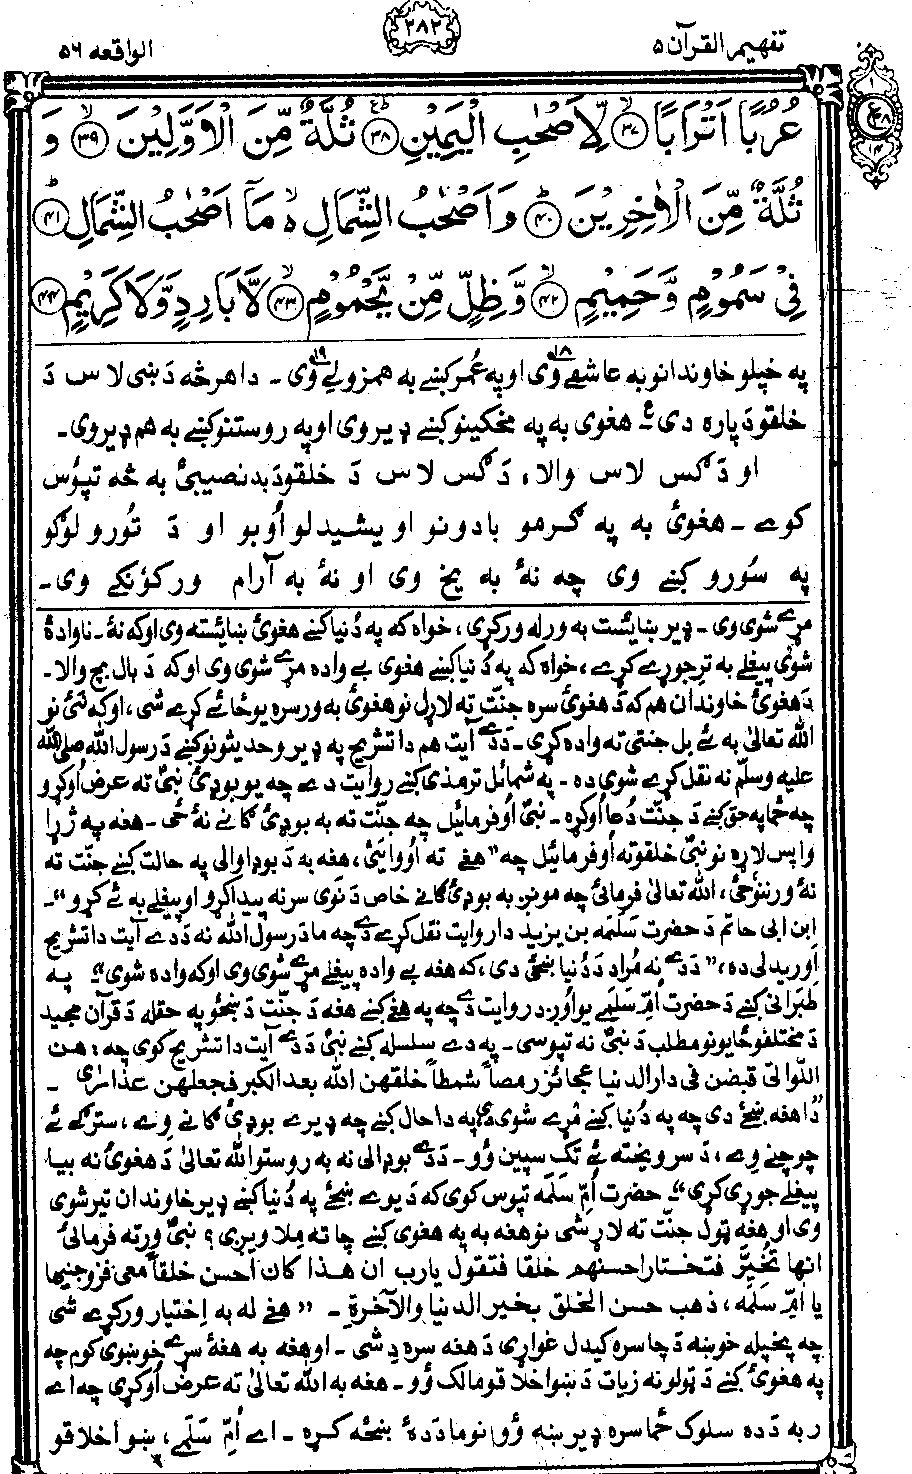 تفهیم القرآن ۵
۲۸۲
الواقعه ۵۶
عُرُبًا اَتْرَابًا ﴿۳۷﴾ لِّاَصْحٰبِ الْیَمِیْنِ ﴿۳۸﴾ ثُلَّةٌ مِّنَ الْاَوَّلِیْنَ ﴿۳۹﴾ وَ
ثُلَّةٌ مِّنَ الْاٰخِرِیْنَ ﴿۴۰﴾ وَاَصْحٰبُ الشِّمَالِ ۙ مَآ اَصْحٰبُ الشِّمَالِ ﴿۴۱﴾
فِیْ سَمُوْمٍ وَّحَمِیْمٍ ﴿۴۲﴾ وَّظِلٍّ مِّنْ یَّحْمُوْمٍ ﴿۴۳﴾ لَّا بَارِدٍ وَّلَا كَرِیْمٍ ﴿۴۴﴾
په خپلو خاوندانو به عاشقے وی ۱۸ او په عُمر کښے به همزولے وی ۱۹ ـ دا هر څه دَ ښی لاس دَ
خلقو دَ پاره دی ـ هغوی به په مخکینو کښے ډیر وی او په روستنو کښے به هم ډیر وی ـ
او دَ ګس لاس والا، دَ ګس لاس دَ خلقو دَ بدنصیبئ به څه تپوس
کوے ـ هغوئ به په ګرمو بادونو او یشیدلو اُوبو او دَ تُورو لوګو
په سُورو کښے وی چه نۀ به یخ وی او نۀ به آرام ورکوُنکے وی ـ
مړے شوی وی ـ ډیر ښایئست به ورله ورکړی، خواه که په دُنیا کښے هغوئ ښائیسته وی او که نۀ ـ ناوادۀ
شوئ پیغلے به ترِ جوړے کړے، خواه که په دُنیا کښے هغوی بے واده مړے شوی وی او که دَ بال بچ والا ـ
دَ هغوئ خاوندان هم که دَ هغوئ سره جنّت ته لاړل نو هغوئ به ورسره یوځائے کړے شی، او که نَئ نو
الله تعالیٰ به ئے بل جنتی ته واده کړی ـ دَ دے آیت هم دا تشریح په ډیرو حدیثونو کښے دَ رسول الله صلی الله
علیه وسلّم نه نقل کړے شوی ده ـ په شمائل ترمذی کښے روایت دے چه یو بوډئ نبیؐ ته عرض اُوکړو
چه ځما په حق کښے دَ جنّت دُعا اُوکړه ـ نبیؐ اُوفرمائیل چه جنّت ته به بوډئ ګانے نۀ ځی ـ هغه په ژړا
واپس لاړه نو نبیؐ خلقو ته اُوفرمائیل چه "هغے ته اُووائیئ، هغه به دَ بوډاوالی په حالت کښے جنّت ته
نۀ ورننوځئ، الله تعالیٰ فرمائی چه مونږ به بوډئ ګانے خاص دَ نَوی سر نه پیدا کړو او پیغلے به ئے کړو" ـ
ابن ابی حاتم دَ حضرت سَلَمَه بن یزید دا روایت نقل کړے دے چه ما دَ رسول الله نه دَ دے آیت دا تشریح
اَوریدلی ده، "دَ دے نه مُراد دَ دُنیا ښځئ دی، که هغه بے واده پیغلے مړے شوی وی او که واده شوی" ـ په
طَبَرانی کښے دَ حضرت اُمّ سَلَمے یو اُوږد روایت دے چه په هغے کښے هغه دَ جنّت دَ ښځو په حقله دَ قرآن مجید
دَ مختلفو ځایونو مطلب دَ نبیؐ نه تپوسی ـ په دے سلسله کښے نبیؐ دَ دے آیت دا تشریح کوی چه: هن
اللّواتی قبضن فی دار الدنیا عجائز رمصاً شمطاً خلقهن الله بعد الکبر فجعلهن عذارٰی ـ
"دا هغه ښځے دی چه په دُنیا کښے مُړے شوی وی په دا حال کښے چه ډیرے بوډئ ګانے وے، سترګے ئے
چوچنے وے، دَ سر ویخته ئے تک سپین وُو ـ دَ دے بوډالی نه په روستو الله تعالیٰ دَ هغوئ نه بیا
پیغلے جوړی کړی" ـ حضرت اُمّ سَلَمه تپوس کوی که دَ یوے ښځے په دُنیا کښے ډیر خاوندان تیر شوی
وی او هغه ټول جنّت ته لاړ شی نو هغه به په هغوی کښے چا ته مِلاویږی؟ نبیؐ ورته فرمائی
انها تُخَیَّر فتختار احسنهم خلقا فتقول یارب ان هذا کان احسن خلقاً معی فزوجنیها
یا اُمّ سَلَمه، ذهب حسن الخلق بخیر الدنیا والآخرة ـ "هغے له به اِختیار ورکړے شی
چه په خپله خوښه دَ چا سره کیدل غواړی دَ هغه سره دِ شی ـ او هغه به هغۀ سړے خوښوی کوم چه
په هغوئ کښے دَ ټولو نه زیات دَ ښو اخلاقو مالک وُو ـ هغه به الله تعالیٰ ته عرض اُوکړی چه اے
ربه دَ ده سلوک ځما سره ډیر ښه وُو نو ما دَ دۀ ښځه کړه ـ اے اُمّ سَلَمے، ښو اخلاقو